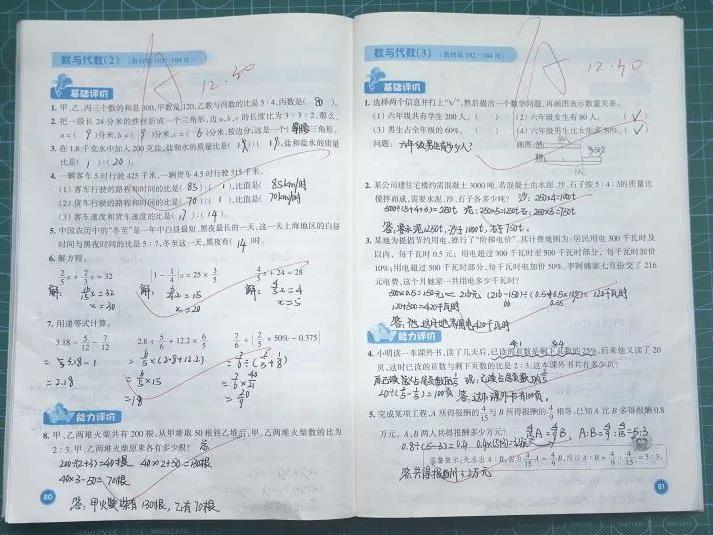 数与代数(2) (教材第102~104页)
12.30
基础评价
1. 甲、乙、丙三个数的和是300,甲数是120,乙数与丙数的比是5:4,丙数是( 80 )。
2. 把一根长24分米的铁丝折成一个三角形,边a,b,c的长度比为3:3:2,那么,
a=( 9 )分米,b=( 9 )分米,c=( 6 )分米,按边分,这是一个( )三角形。
3. 在1.8千克水中加入200克盐,盐和水的质量比是( 1 ):( 9 ),盐和盐水的质量
比是( 1 ):( 20 )。
4. 一辆客车5时行驶425千米,一辆货车4.5时行驶315千米。
(1)客车行驶的路程和时间的比是( 85 ):( 1 ),比值是( 85km/时 )
(2)货车行驶的路程和时间的比是( 70 ):( 1 ),比值是( 70km/时 )
(3)客车速度和货车速度的比是( 17 ):( 14 )。
5. 中国农历中的“冬至”是一年中白昼最短、黑夜最长的一天,这一天上海地区的白昼
时间与黑夜时间的比是5:7,冬至这一天,黑夜有( 14 )时。
6. 解方程。
2/5 x+2/3 x=32 |1-1/4|x=25×3/5 4/5 x+24=28
解: 16/15 x=32 解: x=15 解: 4/5 x=4
x=30 x=20 x=5
7. 用递等式计算。
3.18-5/12-7/12 2.8÷5/6+12.2×6/5 7/6÷[2/5+50%-0.375]
=3.18-1 =6/5×(2.8+12.2)
=2.18 =6/5×15
=18 =20/9
能力评价
8. 甲、乙两堆火柴共有200根,从甲堆取50根到乙堆后,甲、乙两堆火柴数的比为
2:3,甲、乙两堆火柴原来各有多少根?
200÷(2+3)=40根 40×2+50=130根
40×3-50=70根
答:甲火柴有130根,乙有70根
80
数与代数(3) (教材第102~104页)
12.30
基础评价
1. 选择两个信息并打上“√”,然后提出一个数学问题,再画图表示数量关系。
(1)六年级共有学生200人。( ) (2)六年级有女生80人。( √ )
(3)男生占全年级的60%。( ) (4)六年级男生比女生多50%。( √ )
问题: 六年级男生有多少人? 画图:
2. 某公司建住宅楼约需混凝土3000吨,若混凝土由水泥、沙、石子按5:4:3的质量比
搅拌而成,需要水泥、沙、石子各多少吨? 沙:250×4=1000t
3. 某地为提倡节约用电,推行了“阶梯电价”,其计费规则为:居民用电300千瓦时及
以内,每千瓦时0.5元;用电超过300千瓦时至500千瓦时部分,每千瓦时加价
10%;用电超过500千瓦时部分,每千瓦时电加价50%。李阿姨家七月份交了216
元电费,这个月她家一共用电多少千瓦时?
120+300=420千瓦时
能力评价
4. 小明读一本课外书,读了几天后,已读的页数是剩下页数的25%,后来他又读了20
页,这时已读的页数与剩下页数的比是2:3,这本课外书共有多少页?
答:这本课外书有100页。
5. 完成某项工程,A所得报酬的4/15与B所得报酬的4/9相等,已知A比B多得报酬0.8
万元。A、B两人共得报酬多少万元? 4/15 A=4/9 B, A:B=4/9:4/15=5:3
温馨提示:先求出A:B,因为4/15 A=4/9 B,所以A:B=4/9:4/15=5:3。
答:共得报酬3.2万元
81